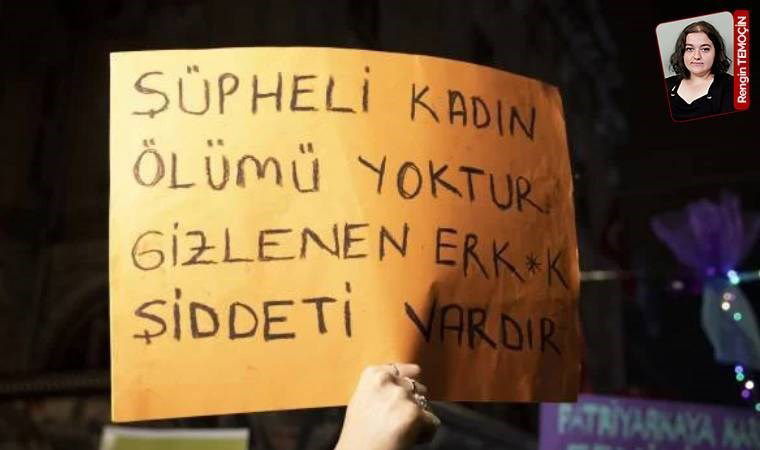 ŞÜPHELİ KADIN
ÖLÜMÜ YOKTUR
GİZLENEN ERK*K
ŞİDDETİ VARDIR
Rengin TEMOÇİN
PATRİYARKAYA